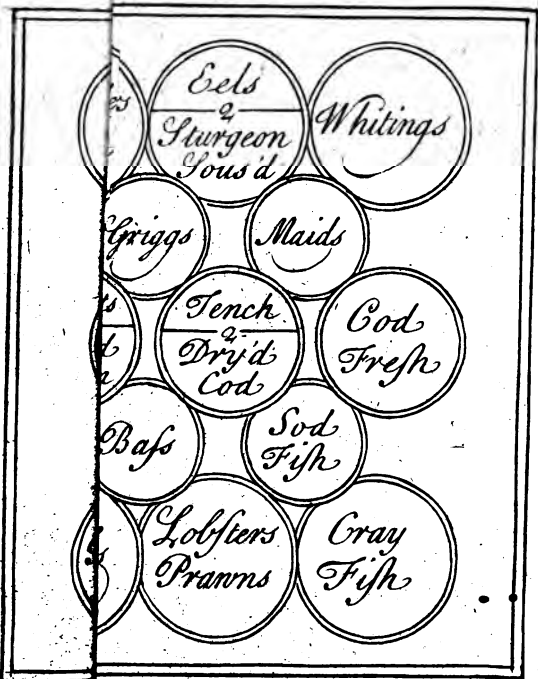 es
Eels
2
Sturgeon
Sous'd
Whitings
Griggs
Maids
ts
d
n
Tench
2
Dry'd
Cod
Cod
Freſh
Baſs
Sod
Fiſh
s
Lobſters
Prawns
Cray
Fiſh